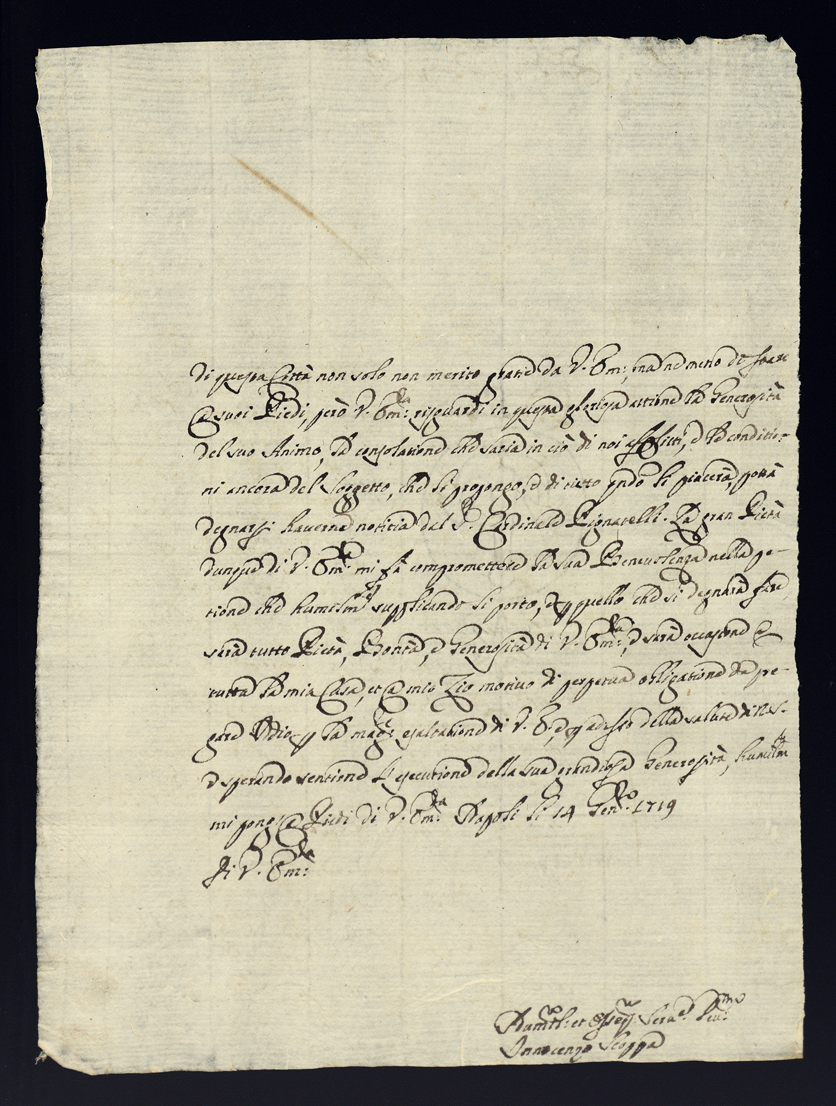 di questa Città non solo non merito grande da V. Em:, ma ne meno di stare
a suoi Piedi, però V. Em:za risguardi in questa gloriosa attione la Generosità
del suo Animo, la consolatione che saria in ciò di noi afflitti, e la conditio-
ni ancora del Soggetto, che li propongo, e di tutto q.ndo li piacerà, potrà
degnarsi haverne notitia dal S.r Cardinale Pignatelli. La gran Pietà
dunque di V. Em:za mi fa compromettere la sua Benevolenza nella pe-
titione che humilm.te supplicando li porto, e quello che si degnarà fare,
sarà tutto Pietà, Bontà, e Generosità di V. Em:za, e sarà occasione a
tutta la mia Casa, et a mio Zio motivo di perpetua obligatione da pre-
gare Iddio p la magg.r esaltatione di V. E.,
e sperando sentirne l'esecutione della sua grandiosa Generosità, humilm.te
mi pongo a Piedi di V. Em:za Napoli li 14 Gen.ro 1719
Di V. Em:za
Innocenzo Scoppa